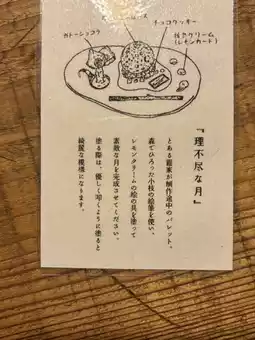 ガトーショコラ
チョコクッキー
生クリーム
(レモンカード)
『理不尽な月』
とある罷家が制作途中のパレット。
森でひろった小枝の絵筆を使い、
レモンクリームの絵の具を塗って
素敵な月を完成させてください。
塗る際は、優しく叩くように塗ると
綺麗な模様になります。